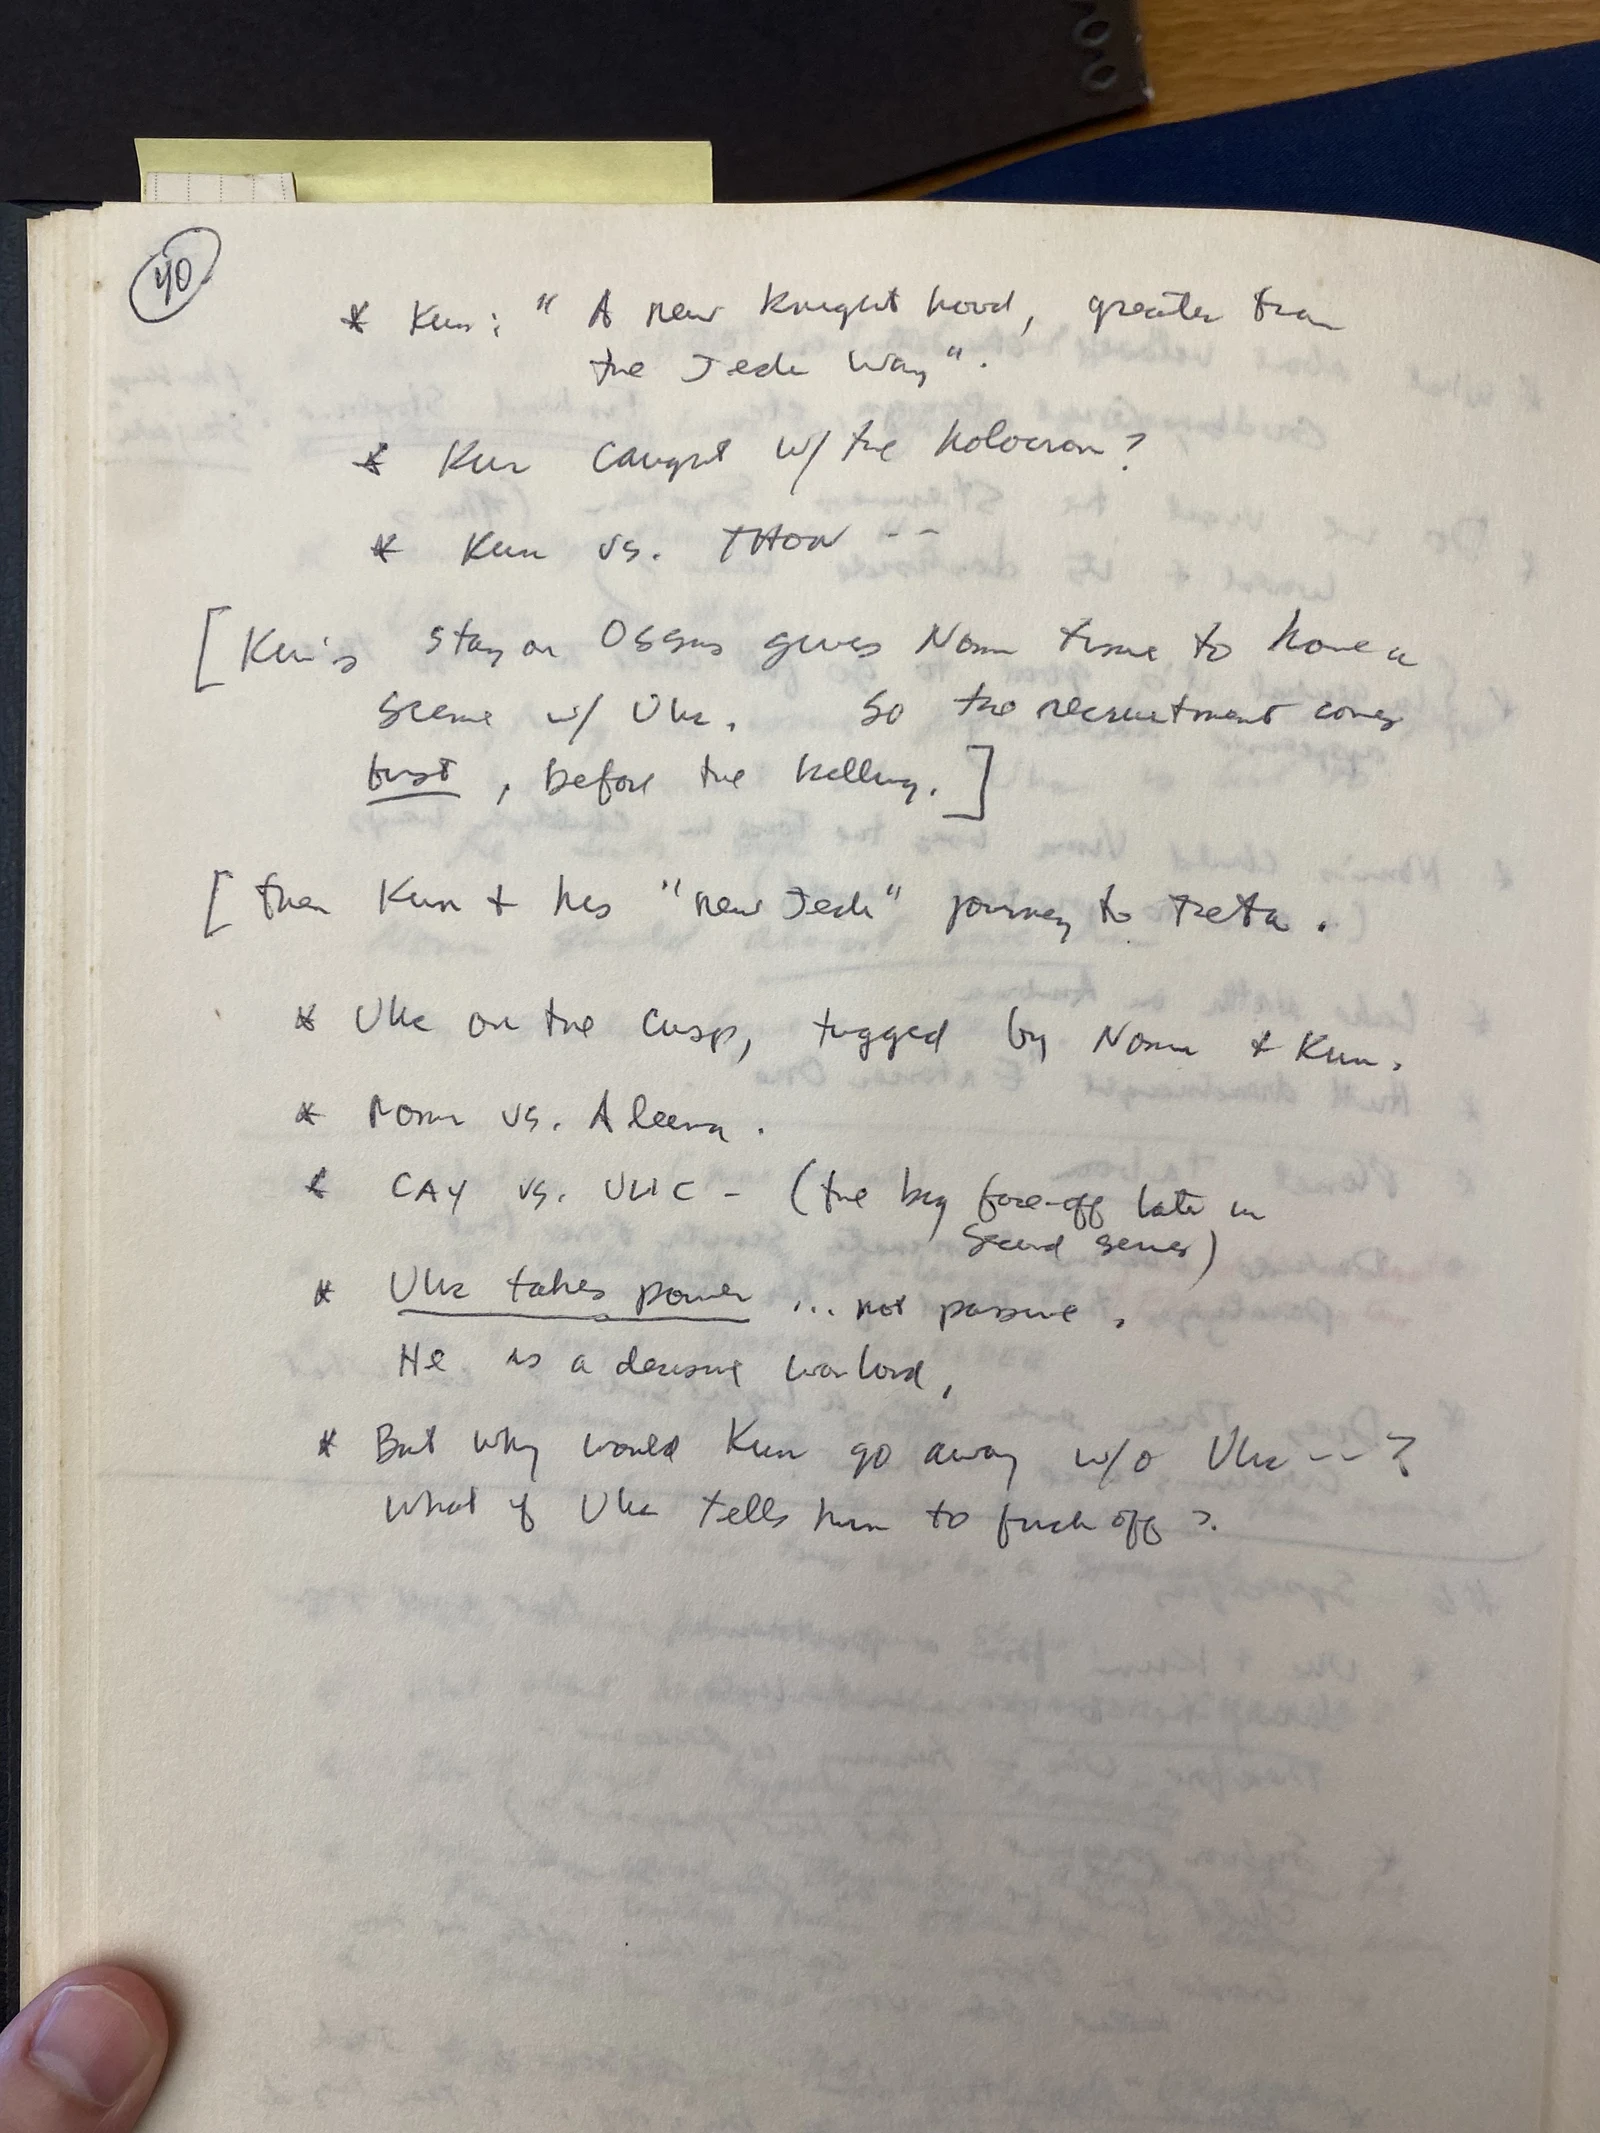 40
* Kun: "A new Knighthood, greater than
the Jedi Way".
* Kun caught w/ the holocron?
* Kun vs. THON --
[Kun's stay on Ossus gives Nomi time to have a
scene w/ Ulic. So the recruitment comes
first, before the killing.]
[then Kun + his "new Jedi" journey to Teta.
* Ulic on the cusp, tugged by Nomi + Kun.
* Nomi vs. Aleema.
* CAY vs. ULIC - (the big face-off late in
second series)
* Ulic takes power ... not passive.
He is a decisive warlord,
* But why would Kun go away w/o Ulic---?
What if Ulic tells him to fuck off?